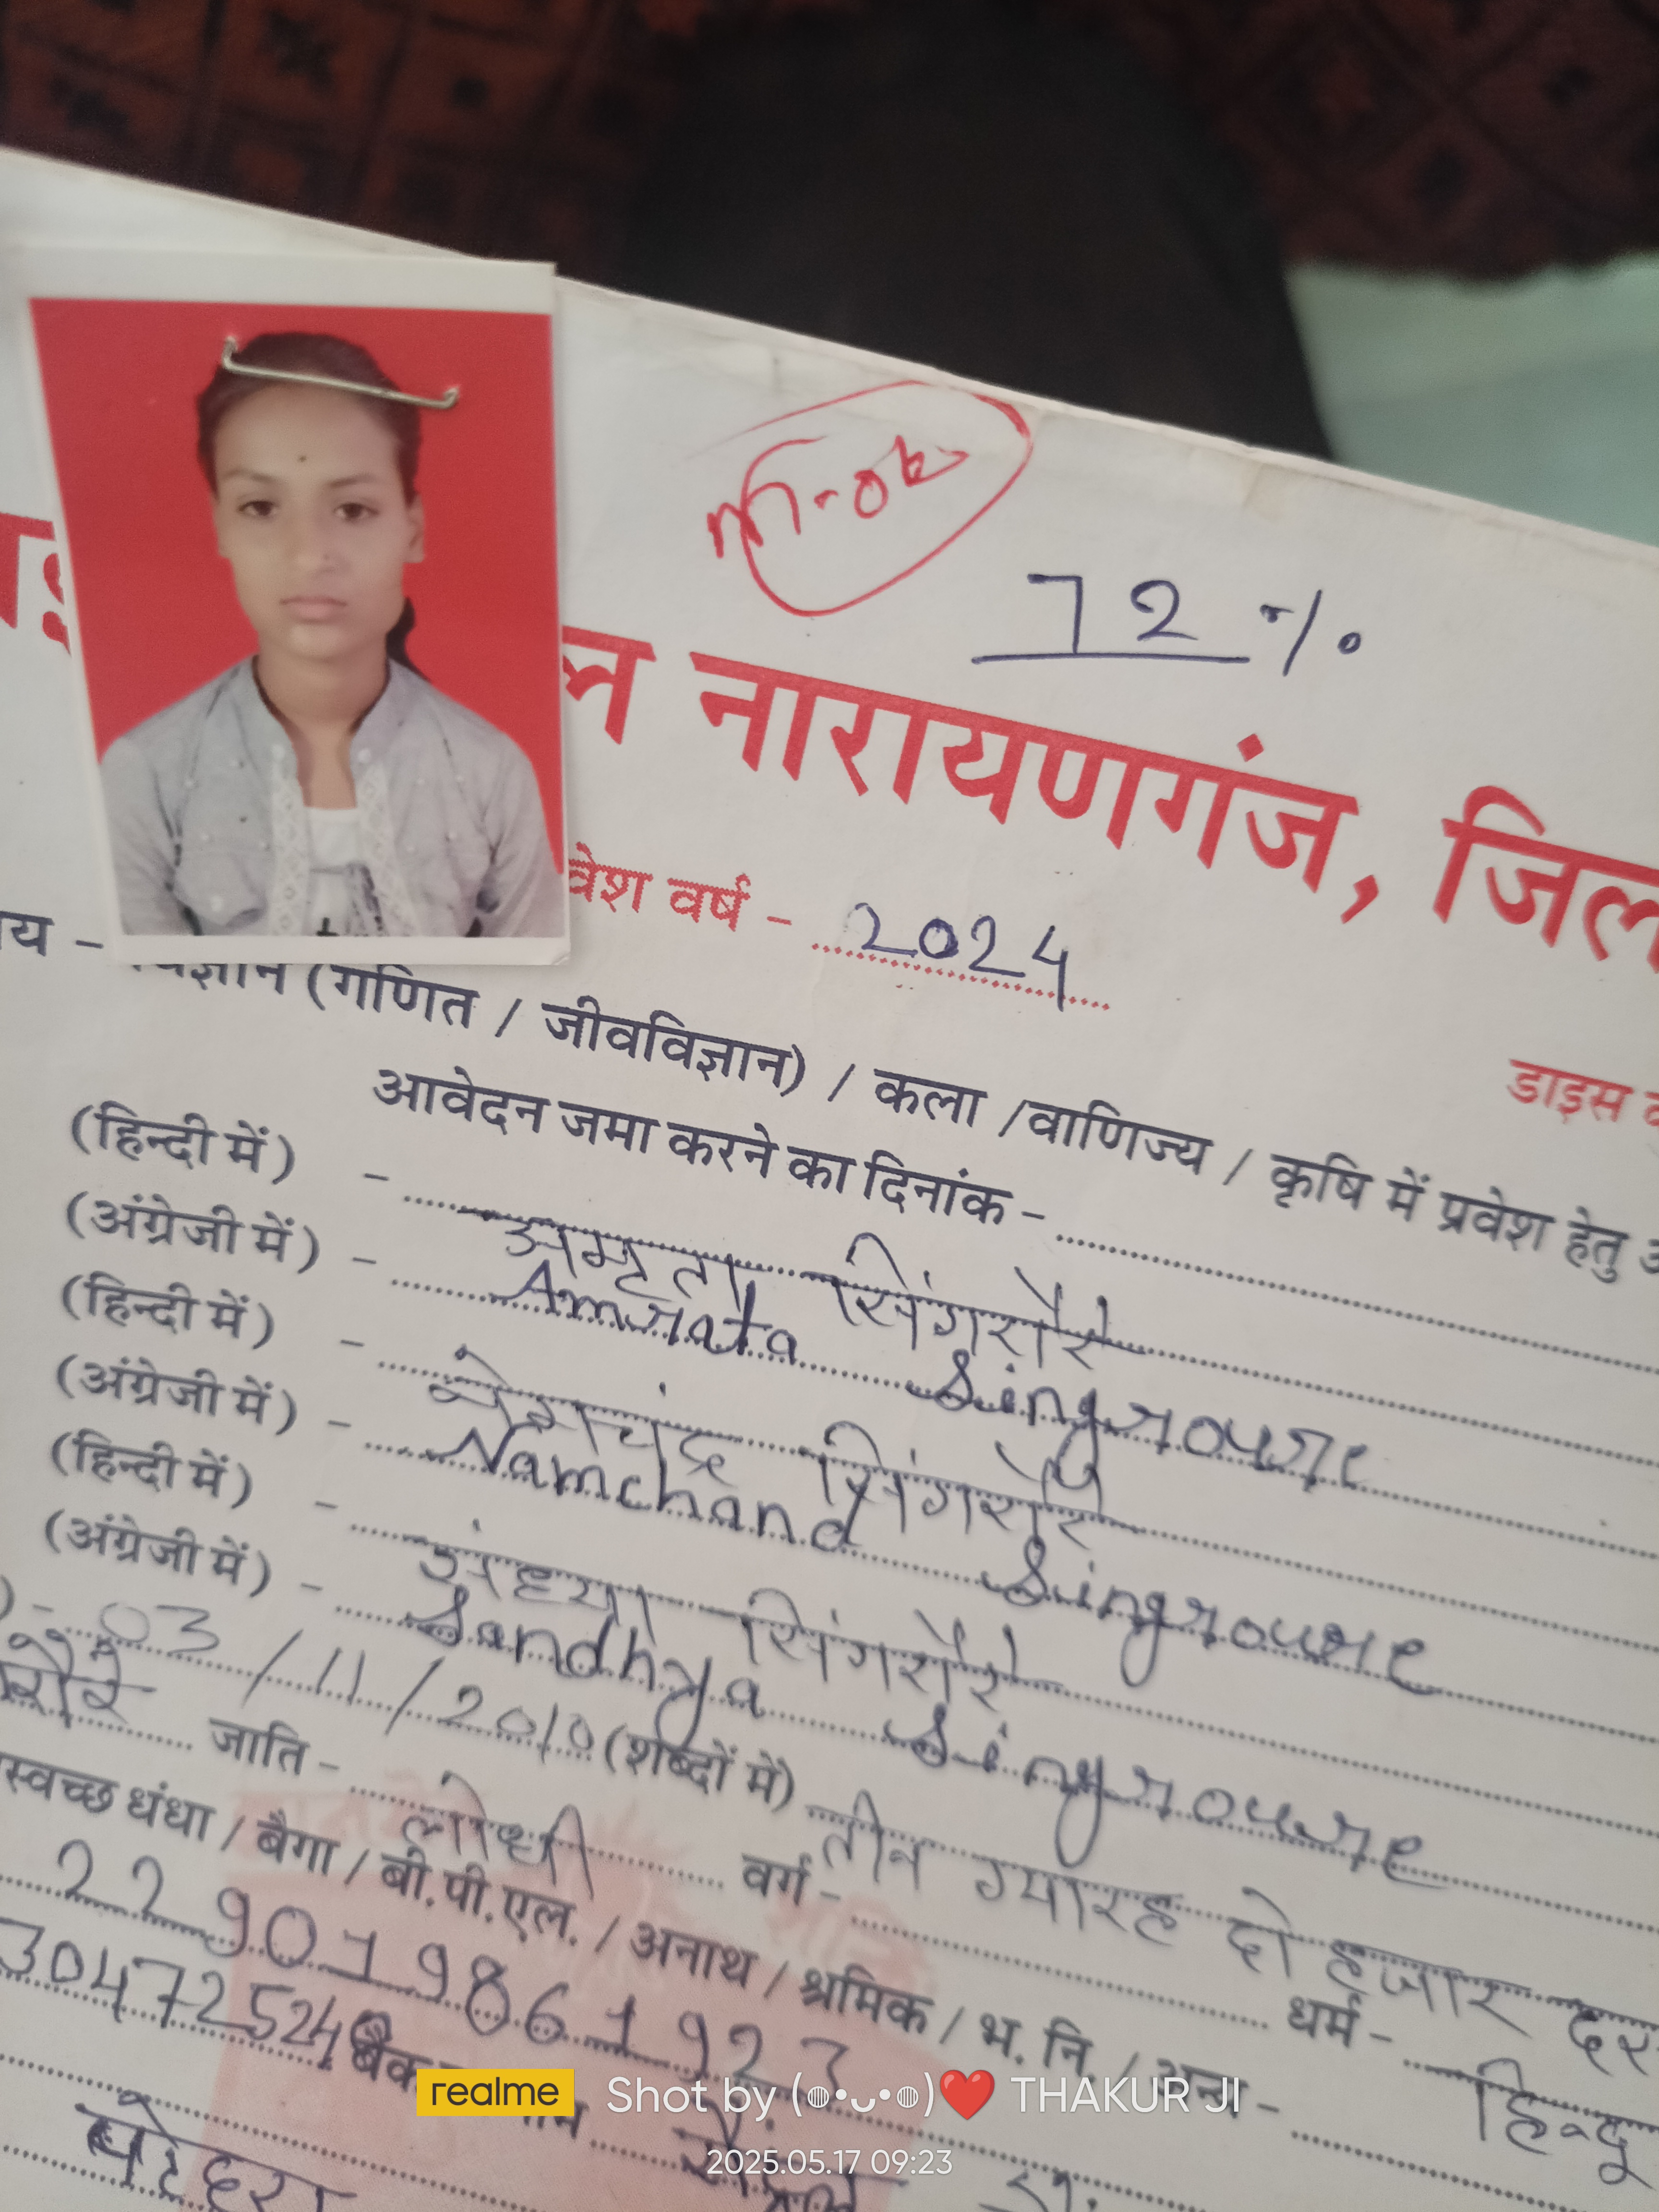 m-ok
72 %
ल नारायणगंज, जिल
वेश वर्ष - 2024
डाइस
य - विज्ञान (गणित / जीवविज्ञान) / कला /वाणिज्य / कृषि में प्रवेश हेतु
आवेदन जमा करने का दिनांक -
(हिन्दी में) - अमृता सिंगरौरे
(अंग्रेजी में) - Amrata Singroure
(हिन्दी में) - नेमचंद्र सिंगरौरे
(अंग्रेजी में) - Namchand Singroure
(हिन्दी में) - संध्या सिंगरौरे
(अंग्रेजी में) - Sandhya Singroure
) - 03/11/2010 (शब्दों में) तीन ग्यारह दो हजार दस
रौरे जाति - लोधी वर्ग - धर्म - हिन्दू
स्वच्छ धंधा / बैगा / बी.पी.एल. / अनाथ / श्रमिक / भ. नि. / अन्य -
229019861923
304725240 बैंक
realme Shot by (◍•ᴗ•◍)❤️ THAKUR JI
2025.05.17 09:23